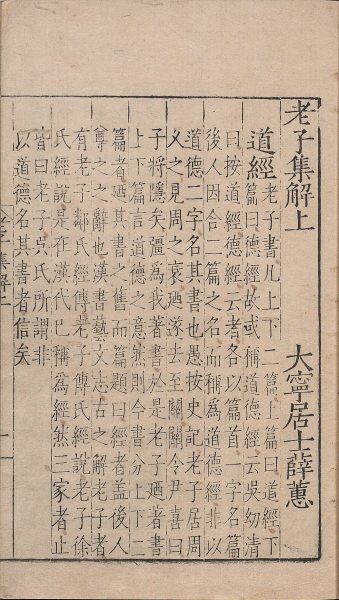 老子集解上　大寧居士薛蕙
道經老子書凡上下二篇上篇曰道經下
篇曰德經故或稱道德經云吳幼清
曰按道經德經云者各以篇首一字名篇
後人因合二篇之名而稱為道德經非以
道德二字名其書也愚按史記老子居周
乆之見周之衰廼遂去至關關令尹喜曰
子將隱矣彊為我著書於是老子廼著書
上下篇言道德之意然則今書分上下二
篇者廼其書之舊而篇題曰經者盖後人
尊之之辭也漢書藝文志古之解老子者
有老子鄰氏經傳老子傅氏經說老子徐
氏經說是在漢代已稱為經然三家者止
皆曰老子吳氏所謂非
以道德名其書者信矣
老子集解上
一